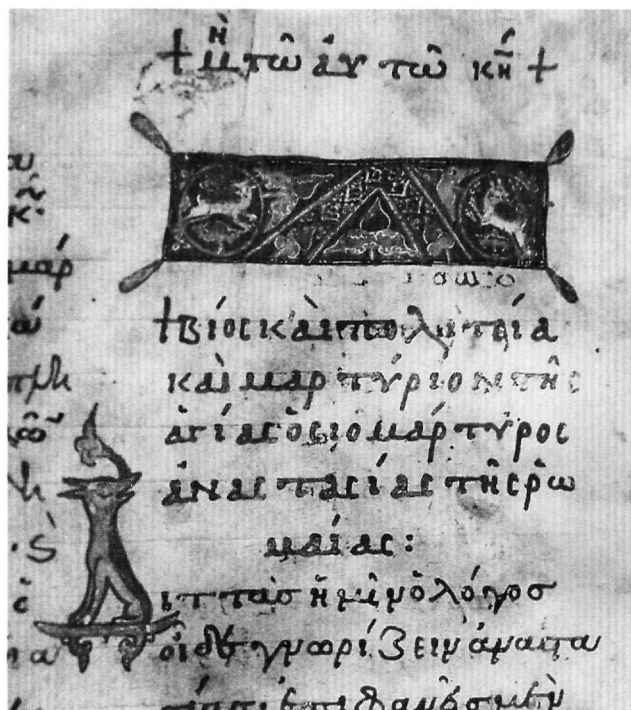 + μη τῶ αὐτῶ κη +
+βίος κὰι πολιτεία
καὶ μαρτύριον τῆς
ἁγίας ὁσιομάρτυρος
ἀναστασίας τῆς ῥω
μαίας:
ιττὰσ ἡμῖν ὁ λόγοσ
οἶδε γνωρίζειν ἀναστα